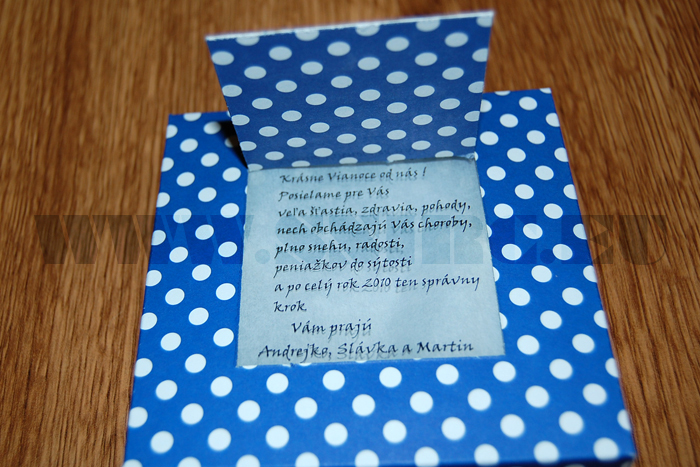 Krásne Vianoce od nás !
Posielame pre Vás
veľa šťastia, zdravia, pohody,
nech obchádzajú Vás choroby,
plno snehu, radosti,
peniažkov do sýtosti
a po celý rok 2010 ten správny
krok
Vám prajú
Andrejko, Slávka a Martin